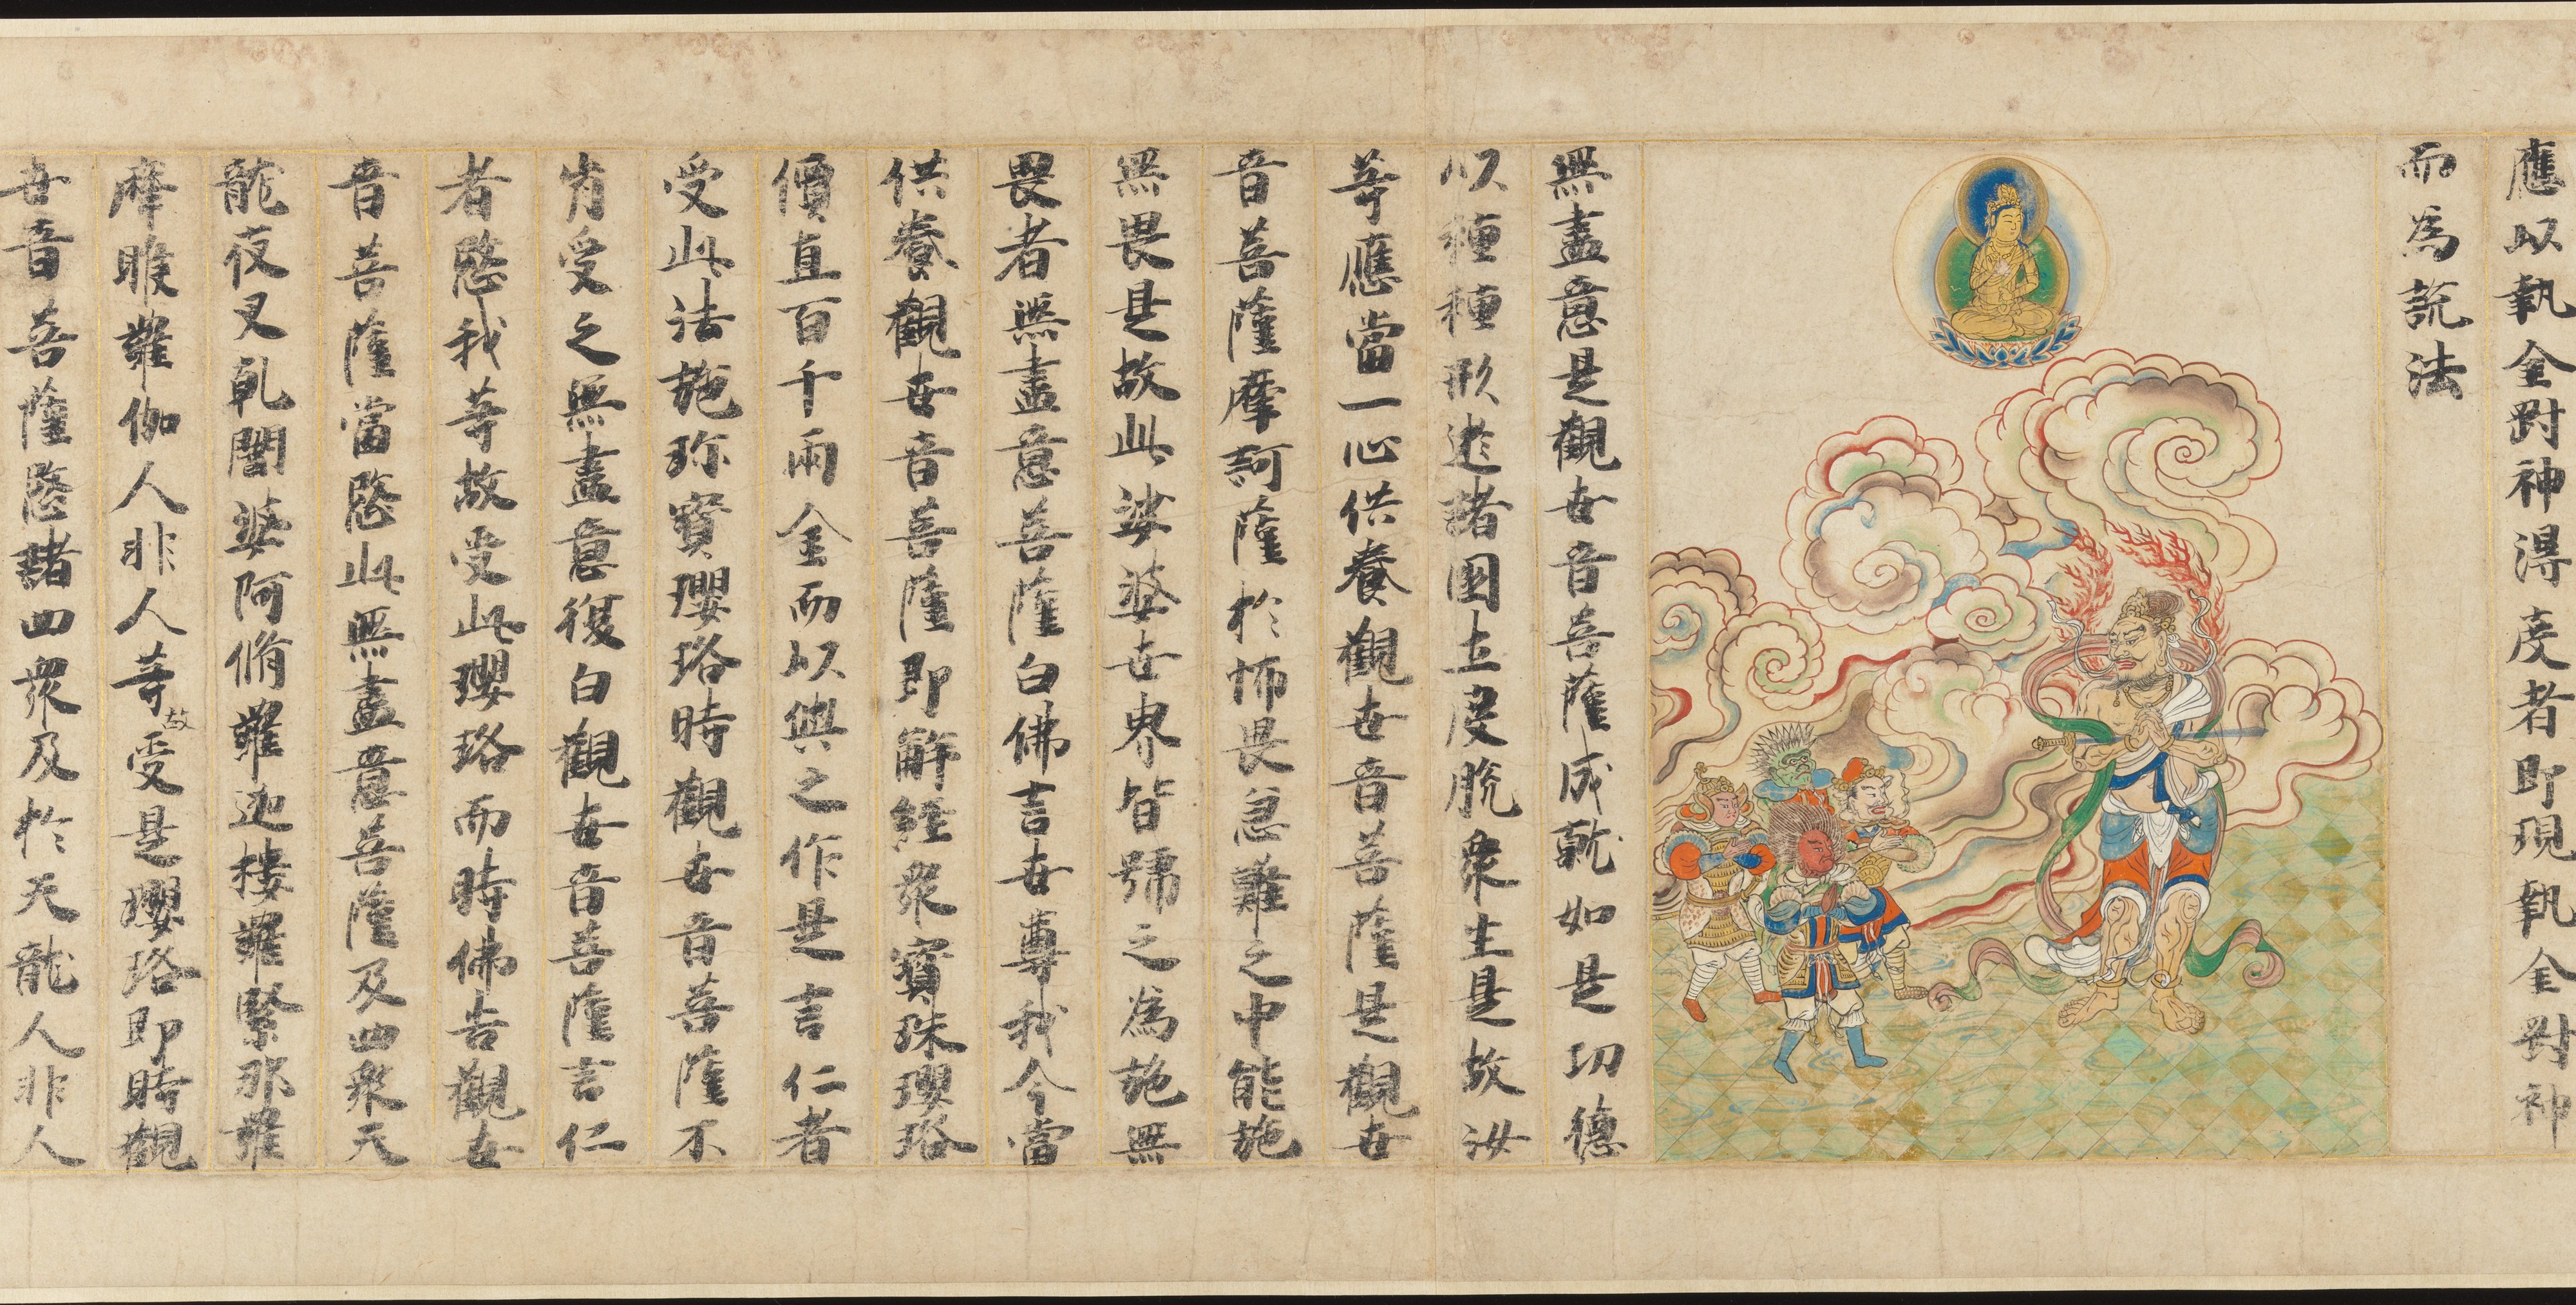 應以執金剛神得度者即現執金剛神
而為說法
無盡意是觀世音菩薩成就如是功德
以種種形遊諸國土度脫衆生是故汝
等應當一心供養觀世音菩薩是觀世
音菩薩摩訶薩於怖畏急難之中能施
無畏是故此娑婆世界皆號之為施無
畏者無盡意菩薩白佛言世尊我今當
供養觀世音菩薩即解經衆寶珠瓔珞
價直百千兩金而以與之作是言仁者
受此法施珎寶瓔珞時觀世音菩薩不
肯受之無盡意復白觀世音菩薩言仁
者愍我等故受此瓔珞而時佛告觀世
音菩薩當愍此無盡意菩薩及四衆天
龍夜叉乹闥婆阿脩羅迦樓羅緊那羅
摩睺羅伽人非人等故受是瓔珞即時觀
世音菩薩愍諸四衆及於天龍人非人